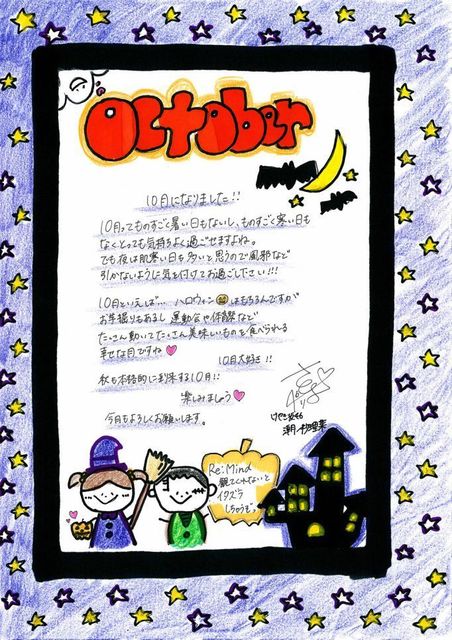 October
10月になりました!!
10月ってものすごく暑い日もないし、ものすごく寒い日も
なくとっても気持ちよく過ごせますよね。
でも夜は肌寒い日も多いと思うので風邪など
引かないように気を付けてお過ごし下さい!!!
10月といえば… ハロウィン🎃はもちろんですが
お芋掘りもあるし 運動会や体育祭など
たくさん動いてたくさん美味しいものを食べられる
幸せな月ですね♥
10月大好き!!
秋も本格的に到来する10月!!
楽しみましょう♥
今月もよろしくお願いします。
けやき坂46
潮 紗理菜
Re:Mind
観てくれないと
イタズラ
しちゃうぞっ